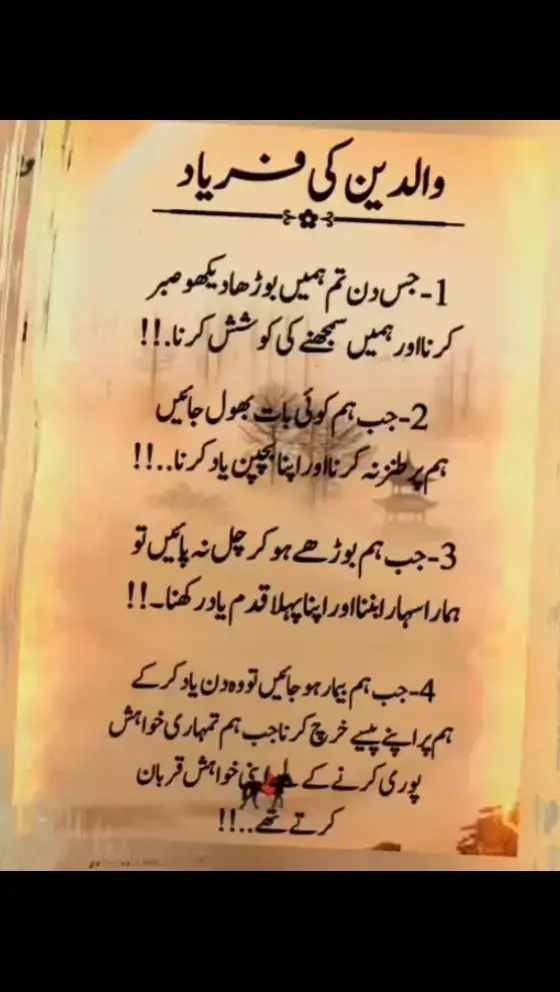 والدین کی فریاد
1-جس دن تم ہمیں بوڑھا دیکھو صبر
کرنا اور ہمیں سمجھنے کی کوشش کرنا.!!
2-جب ہم کوئی بات بھول جائیں
ہم پر طنز نہ کرنا اور اپنا بچپن یاد کرنا..!!
3-جب ہم بوڑھے ہو کر چل نہ پائیں تو
ہمارا سہارا بننا اور اپنا پہلا قدم یاد رکھنا۔!!
4-جب ہم بیمار ہو جائیں تو وہ دن یاد کر کے
ہم پر اپنے پیسے خرچ کرنا جب ہم تمہاری خواہش
پوری کرنے کے لیے اپنی خواہش قربان
کرتے تھے..!!